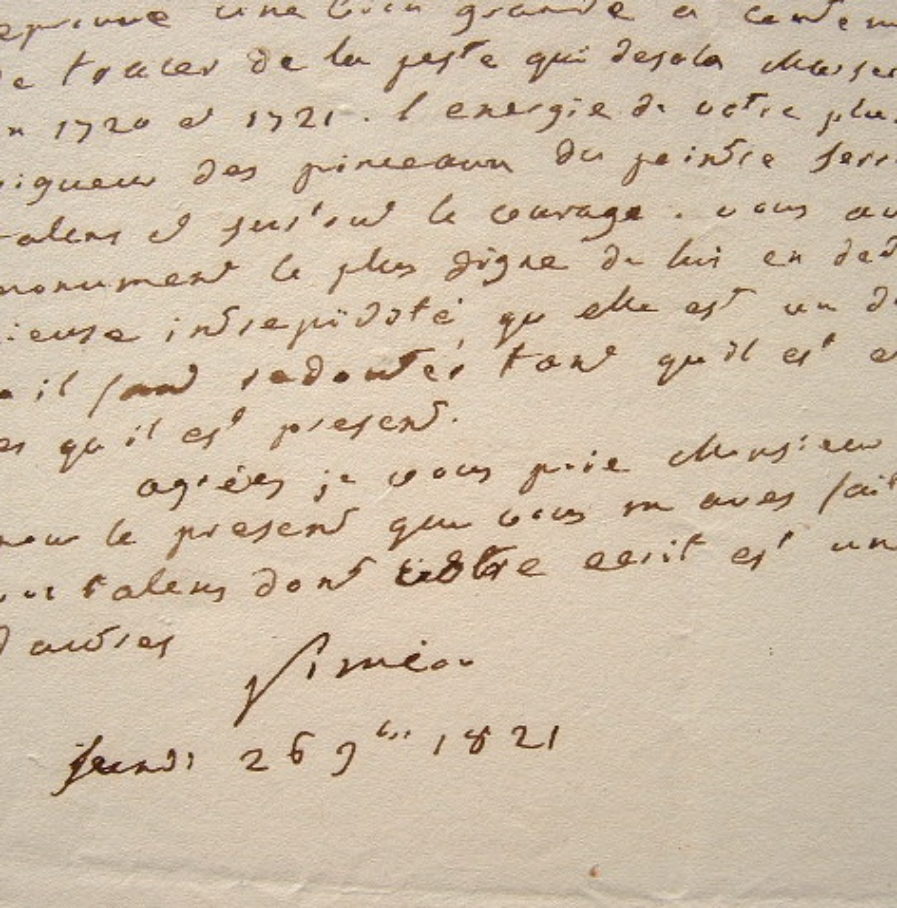 eprouve une bien grande a
de tracer de la peste qui desola Marsei
en 1720 et 1721. l energie de votre plu
vigueur des pinceaux du peintre serr
talens et surtout le courage. vous av
monument le plus digne de lui en ded
ieuse intrepidité qu elle est un d
il faut redouter tant qu'il est e
es qu'il est present.
agréés je vous prie Monsieur
pour le present que vous m aves fait
talens dont votre ecrit est un
d autres
Siméon
lundi 26 9bre 1821